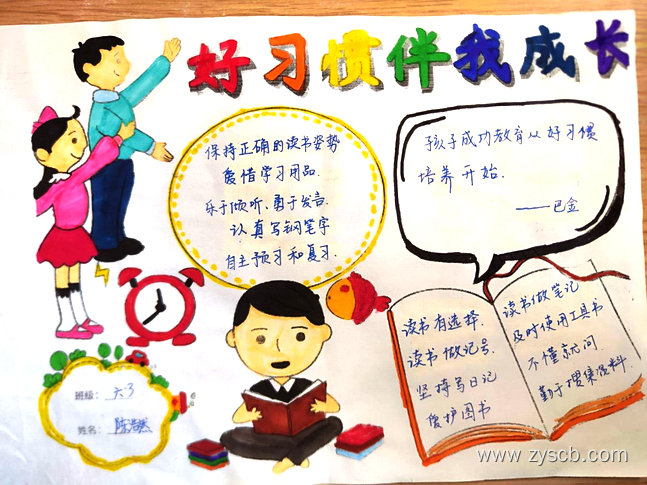 好习惯伴我成长
保持正确的读书姿势
爱惜学习用品.
乐于倾听、勇于发言.
认真写钢笔字
自主预习和复习.
孩子成功教育从好习惯
培养开始.
——巴金
读书有选择.
读书做记号.
坚持写日记
爱护图书
读书做笔记
及时使用工具书
不懂就问
勤于搜集资料.
班级: 六3
姓名: 陈浩然
www.zyscb.com